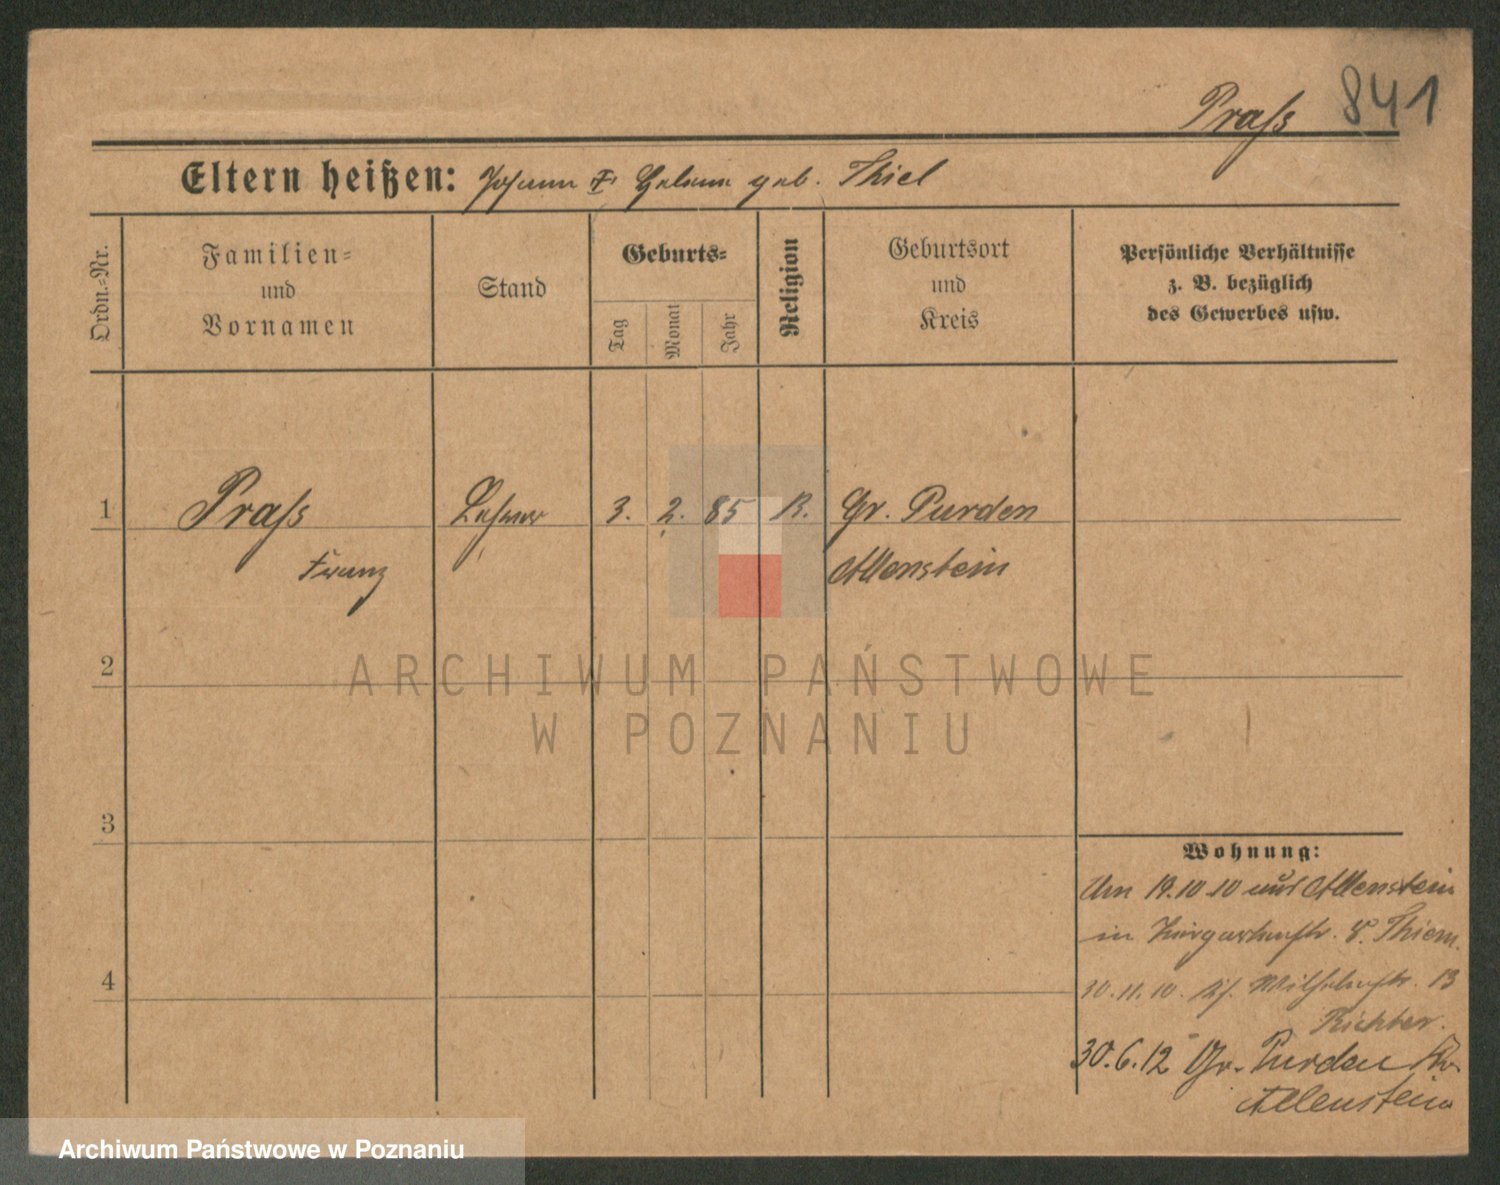 841
Praſs
Eltern heißen: Johann F. geb. Thiel
Ordn.-Nr.
Familien-
und
Vornamen
Stand
Geburts-
Tag
Monat
Jahr
Religion
Geburtsort
und
Kreis
Persönliche Verhältnisse
z. B. bezüglich
des Gewerbes usw.
1 Praſs 3. 2. 85 K. Gr. Purden
Franz Allenstein
2
ARCHIWUM PAŃSTWOWE
W POZNANIU
3
4
Wohnung:
Am 19.10.10 aus Allenstein
in 8. Thiem.
10.11.10. Wilhelmstr. 13
Richter.
30.6.12 Gr. Purden Kr.
Allenstein
Archiwum Państwowe w Poznaniu